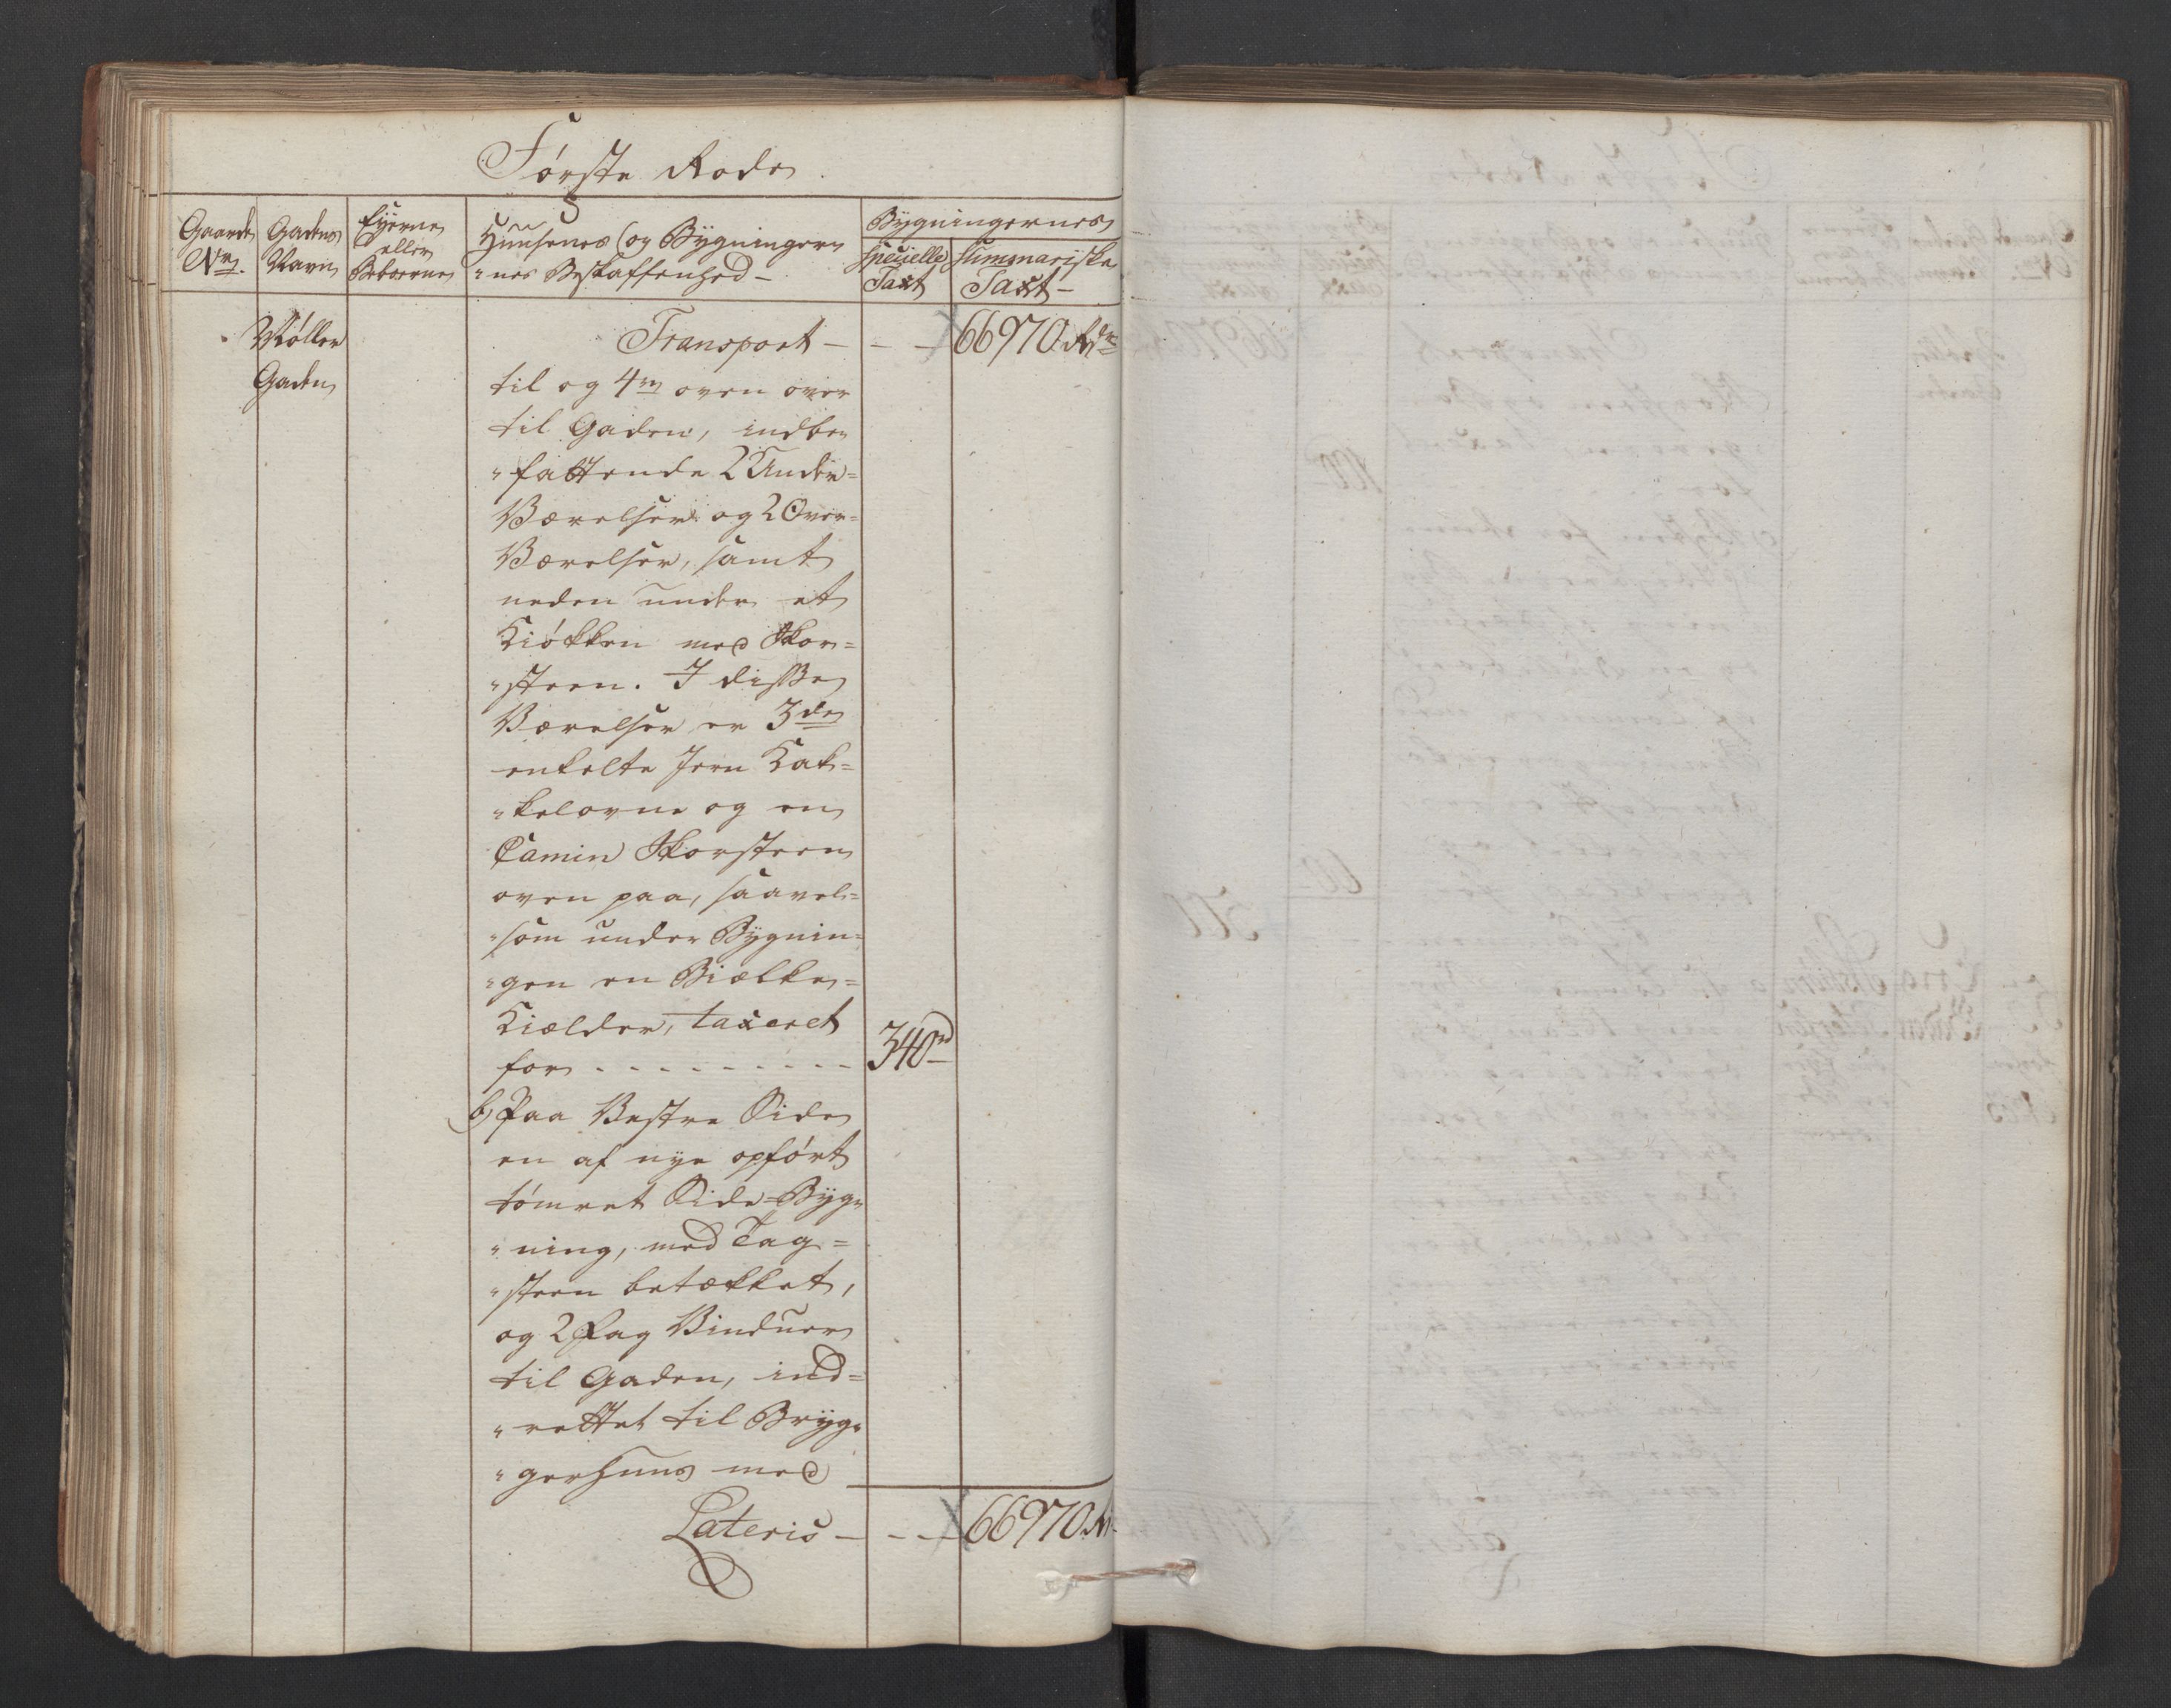 Første Rode
Gaards No.
Gadens Navn
Eyerne eller Beboerne
Huusenes og Bygninger-
"nes Beskaffenhed -
Bygningernes
specielle Taxt
summariske Taxt -
Møller
Gaden
Transport - - - 66970 Rdr
til og 4re oven over
til Gaden, indbe-
"fattende 2 Under=
Værelser og 2 Over=
Værelser, samt
neden under et
Kiøkken med Skor=
"steen. I disse
Værelser er 3de
enkelte Jern Kak=
"kelovne og en
Camin Skorsteen
oven paa, saavel=
"som under Bygnin=
"gen en Biælke=
Kielder, taxeret
for - - - - - - - - - 340rd
b, Paa Vestre Side
en af nye opført
tømret Side-Byg=
"ning, med Tag=
"steen betækket,
og 2 Fag Vinduer
til Gaden, ind=
"rettet til Bryg=
"gerhuus med
Lateris - - - 66970 Rd